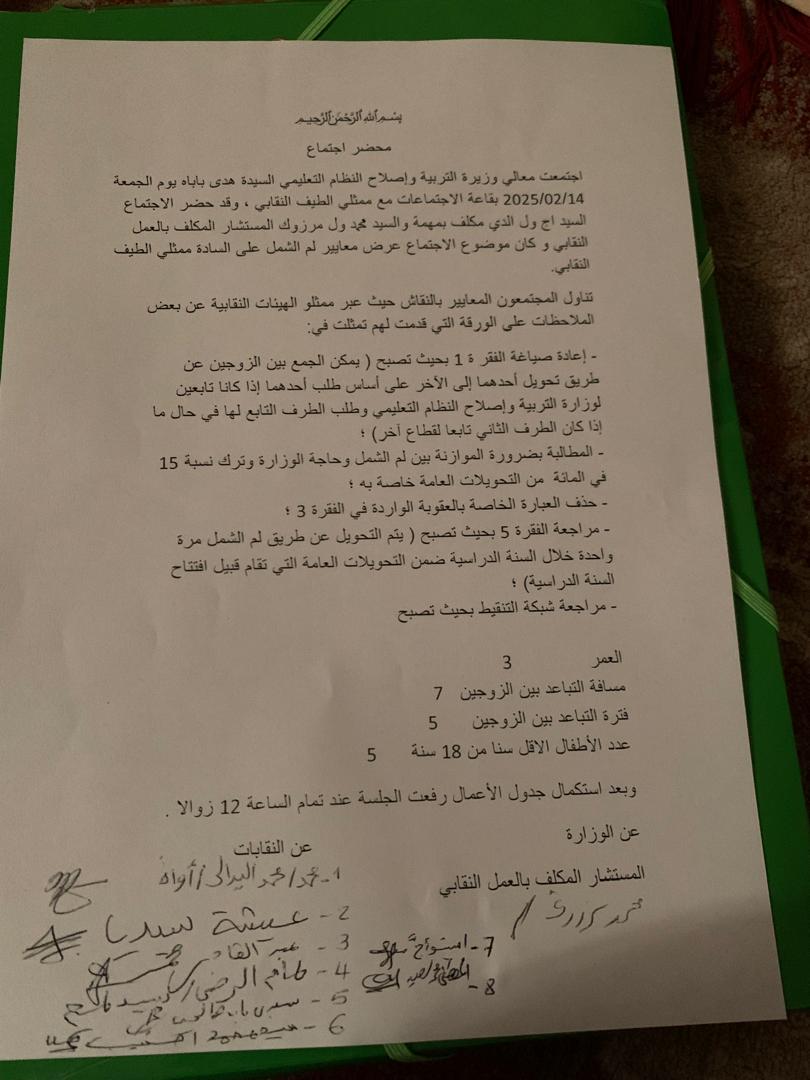 بسم الله الرحمن الرحيم
محضر اجتماع
اجتمعت معالي وزيرة التربية وإصلاح النظام التعليمي السيدة هدى باباه يوم الجمعة
2025/02/14 بقاعة الاجتماعات مع ممثلي الطيف النقابي ، وقد حضر الاجتماع
السيد اج ول الدي مكلف بمهمة والسيد محمد ول مرزوك المستشار المكلف بالعمل
النقابي و كان موضوع الاجتماع عرض معايير لم الشمل على السادة ممثلي الطيف
النقابي.
تناول المجتمعون المعايير بالنقاش حيث عبر ممثلو الهيئات النقابية عن بعض
الملاحظات على الورقة التي قدمت لهم تمثلت في:
- إعادة صياغة الفقر ة 1 بحيث تصبح ( يمكن الجمع بين الزوجين عن
طريق تحويل أحدهما إلى الآخر على أساس طلب أحدهما إذا كانا تابعين
لوزارة التربية وإصلاح النظام التعليمي وطلب الطرف التابع لها في حال ما
إذا كان الطرف الثاني تابعا لقطاع آخر) ؛
- المطالبة بضرورة الموازنة بين لم الشمل وحاجة الوزارة وترك نسبة 15
في المائة من التحويلات العامة خاصة به ؛
- حذف العبارة الخاصة بالعقوبة الواردة في الفقرة 3 ؛
- مراجعة الفقرة 5 بحيث تصبح ( يتم التحويل عن طريق لم الشمل مرة
واحدة خلال السنة الدراسية ضمن التحويلات العامة التي تقام قبيل افتتاح
السنة الدراسية) ؛
- مراجعة شبكة التنقيط بحيث تصبح
العمر 3
مسافة التباعد بين الزوجين 7
فترة التباعد بين الزوجين 5
عدد الأطفال الاقل سنا من 18 سنة 5
وبعد استكمال جدول الأعمال رفعت الجلسة عند تمام الساعة 12 زوالا .
عن الوزارة
عن النقابات
المستشار المكلف بالعمل النقابي
1-
2 - عيشة
3 - عبد
4 -
5 -
6 -
7-
8-